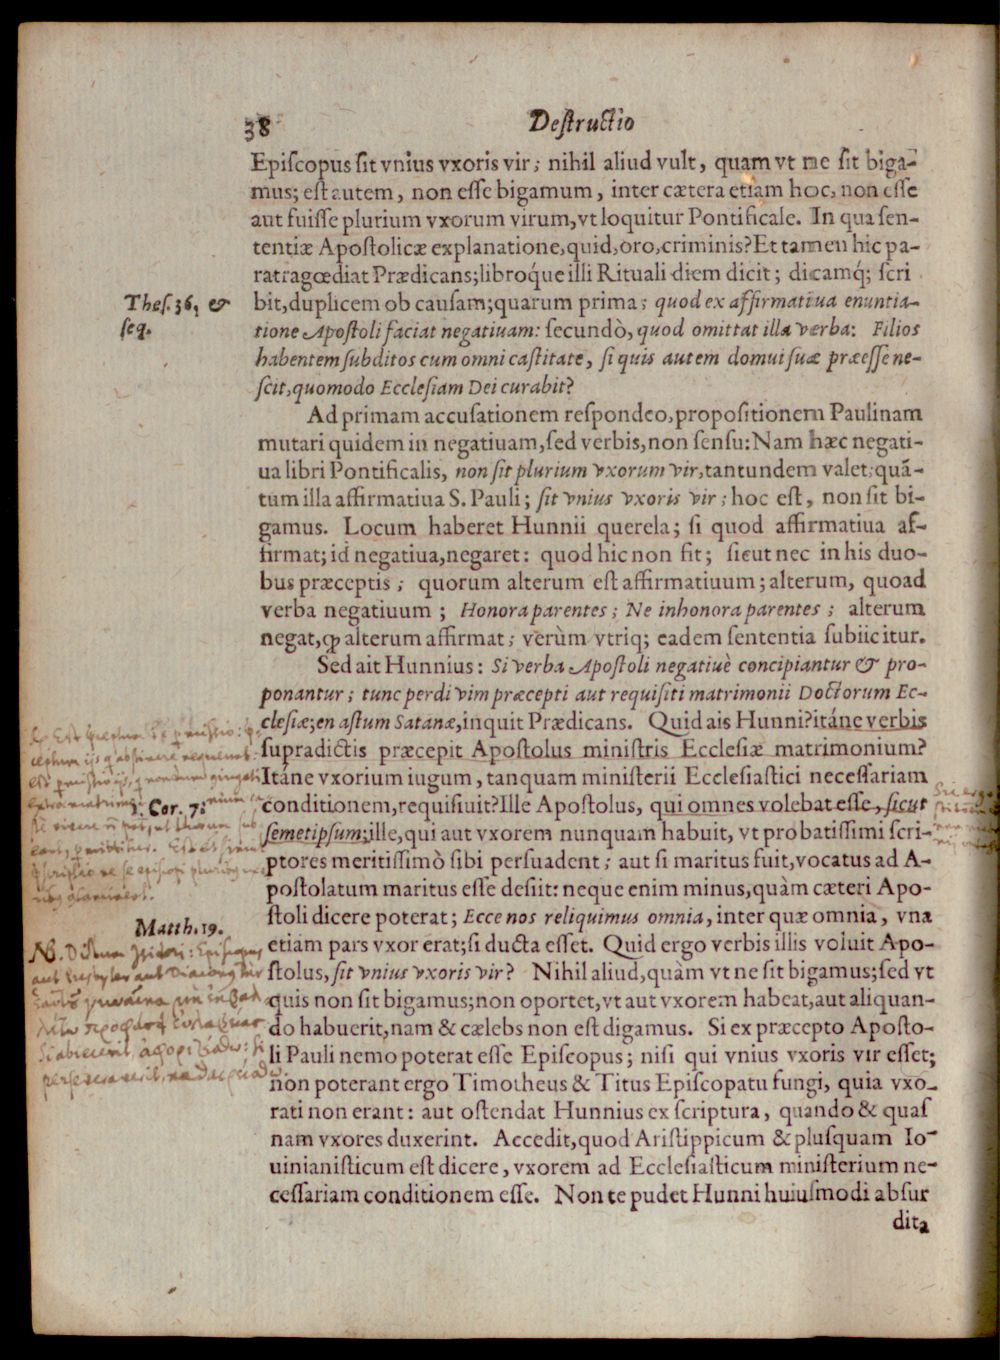 38 Destructio
Episcopus sit vnius vxoris vir; nihil aliud vult, quam vt ne sit biga-
mus; est autem, non esse bigamum, inter cætera etiam hoc, non esse
aut fuisse plurium vxorum virum, vt loquitur Pontificale. In qua sen-
tentiæ Apostolicæ explanatione, quid, oro, criminis? Et tamen hic pa-
ratragœdiat Prædicans; libroq́ue illi Rituali diem dicit; dicamq́; scri
Thes. 36, &
seq.
bit, duplicem ob causam; quarum prima; quod ex affirmatiua enuntia-
tione Apostoli faciat negatiuam: secundò, quod omittat illa verba: Filios
habentem subditos cum omni castitate, si quis autem domui suæ præesse ne-
scit, quomodo Ecclesiam Dei curabit?
Ad primam accusationem respondeo, propositionem Paulinam
mutari quidem in negatiuam, sed verbis, non sensu: Nam hæc negati-
ua libri Pontificalis, non sit plurium vxorum vir, tantundem valet: quã-
tum illa affirmatiua S. Pauli; sit vnius vxoris vir; hoc est, non sit bi-
gamus. Locum haberet Hunnii querela; si quod affirmatiua af-
firmat; id negatiua, negaret: quod hic non fit; sicut nec in his duo-
bus præceptis; quorum alterum est affirmatiuum; alterum, quoad
verba negatiuum; Honora parentes; Ne inhonora parentes; alterum
negat, ꝙ alterum affirmat; verùm vtriq; eadem sententia subiicitur.
Sed ait Hunnius: Si verba Apostoli negatiuè concipiantur & pro-
ponantur; tunc perdi vim præcepti aut requisiti matrimonii Doctorum Ec-
clesiæ; en astum Satanæ, inquit Prædicans. Quid ais Hunni? itáne verbis
supradictis præcepit Apostolus ministris Ecclesiæ matrimonium?
Itáne vxorium iugum, tanquam ministerii Ecclesiastici necessariam
1. Cor. 7.
conditionem, requisiuit? Ille Apostolus, qui omnes volebat esse, sicut
semetipsum; ille, qui aut vxorem nunquam habuit, vt probatissimi scri-
ptores meritissimò sibi persuadent; aut si maritus fuit, vocatus ad A-
postolatum maritus esse desiit: neque enim minus, quàm cæteri Apo-
Matth. 19.
stoli dicere poterat; Ecce nos reliquimus omnia, inter quæ omnia, vna
etiam pars vxor erat; si ducta esset. Quid ergo verbis illis voluit Apo-
stolus, sit vnius vxoris vir? Nihil aliud, quàm vt ne sit bigamus; sed vt
quis non sit bigamus; non oportet, vt aut vxorem habeat, aut aliquan-
do habuerit, nam & cælebs non est digamus. Si ex præcepto Aposto-
li Pauli nemo poterat esse Episcopus; nisi qui vnius vxoris vir esset;
non poterant ergo Timotheus & Titus Episcopatu fungi, quia vxo-
rati non erant: aut ostendat Hunnius ex scriptura, quando & quas
nam vxores duxerint. Accedit, quod Aristippicum & plusquam Io-
uinianisticum est dicere, vxorem ad Ecclesiasticum ministerium ne-
cessariam conditionem esse. Non te pudet Hunni huiusmodi absur
dita
NB.
Episcopus
aut Presbyter aut Diaconus